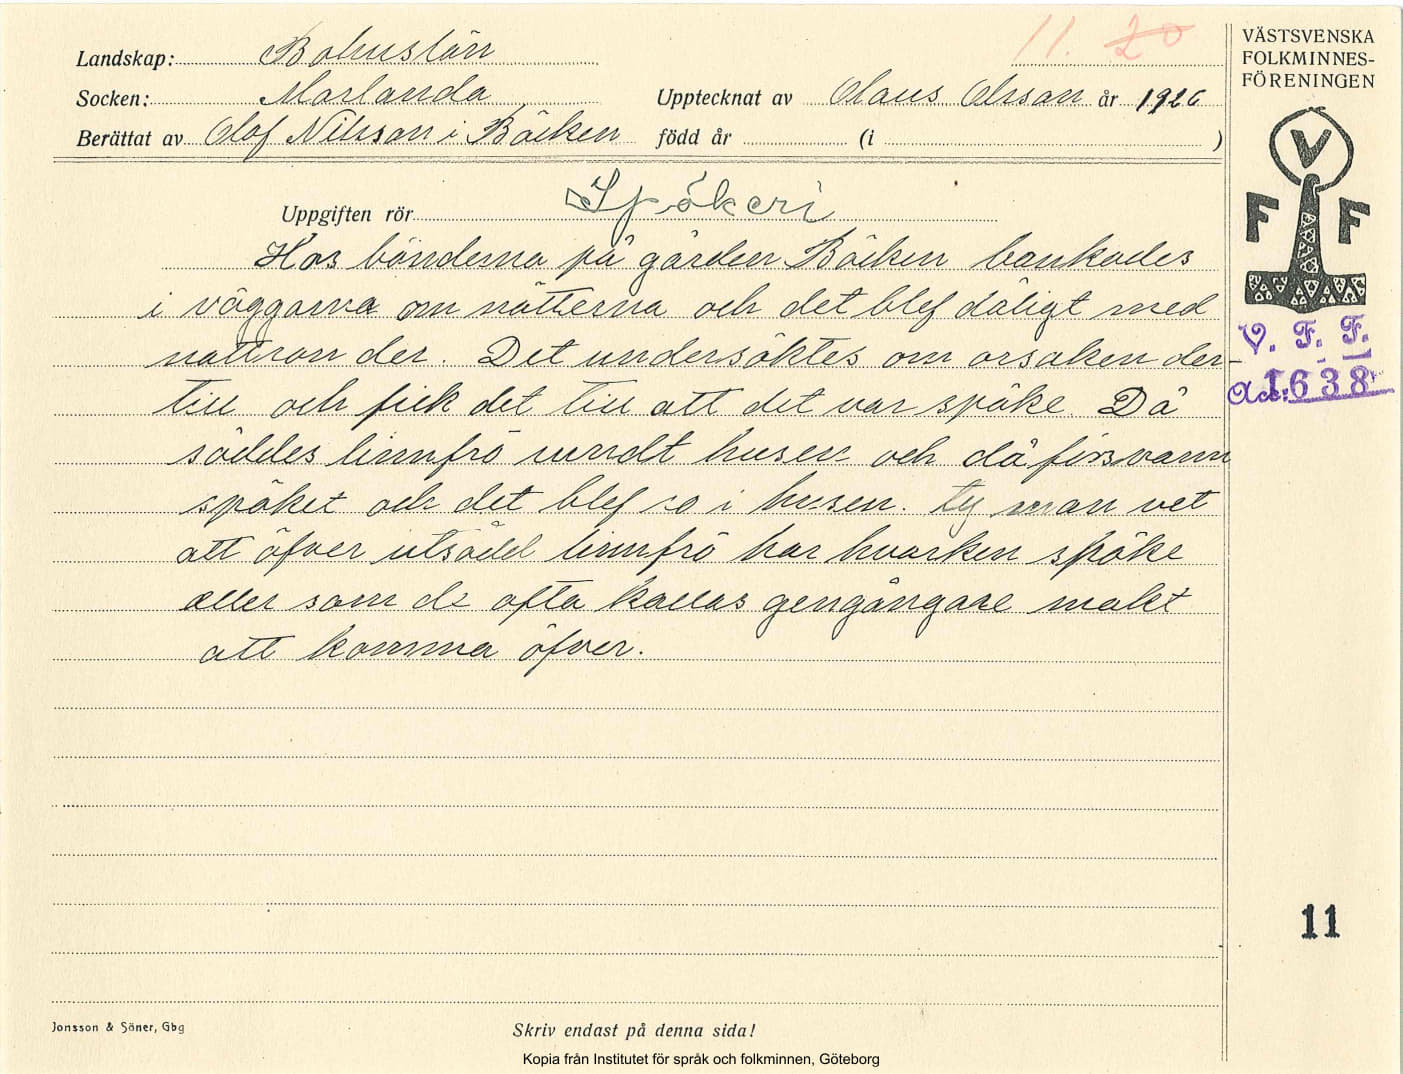 Landskap: Bohuslän
Socken: Morlanda
Upptecknat av Olaus Olsson år 1926
Berättat av Olof Nilsson i Bäcken född år (i )
11. 20
Uppgiften rör Spökeri
Hos bönderna på gården Bäcken bankades
i väggarna om nätterna och det blef dåligt med
nattron der. Det undersöktes om orsaken der-
till och fick det till att det var spöke. Då
såddes linnfrö rundt husen och då försvann
spöket och det blef ro i husen. ty man vet
att öfver utsådd linnfrö har hvarken spöke
eller som de ofta kallas gengångare makt
att komma öfver.
VÄSTSVENSKA
FOLKMINNES-
FÖRENINGEN
V
F F
V. F. F.
Acc: 1638
11
Jonsson & Söner, Gbg
Skriv endast på denna sida!
Kopia från Institutet för språk och folkminnen, Göteborg